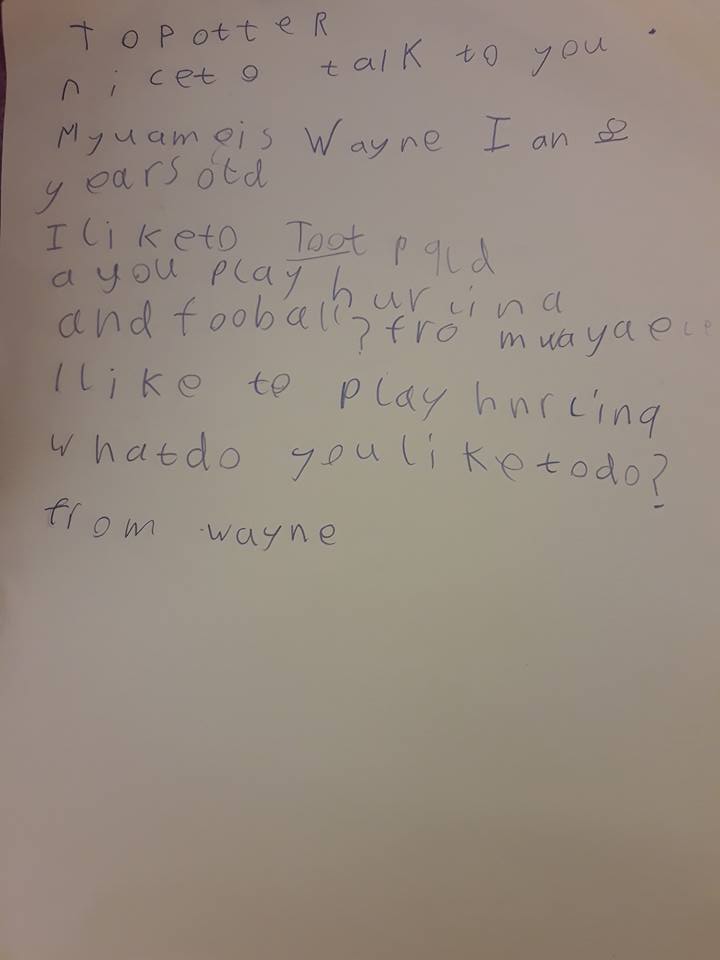 To PotteR
niceto talk to you .
Myuameis Wayne I an 8
years otd
I liketo Toot pqld
a you play hurlina
and fooball? fro muayaece
I like to play hnrcinq
whatdo you liketodo?
from wayne